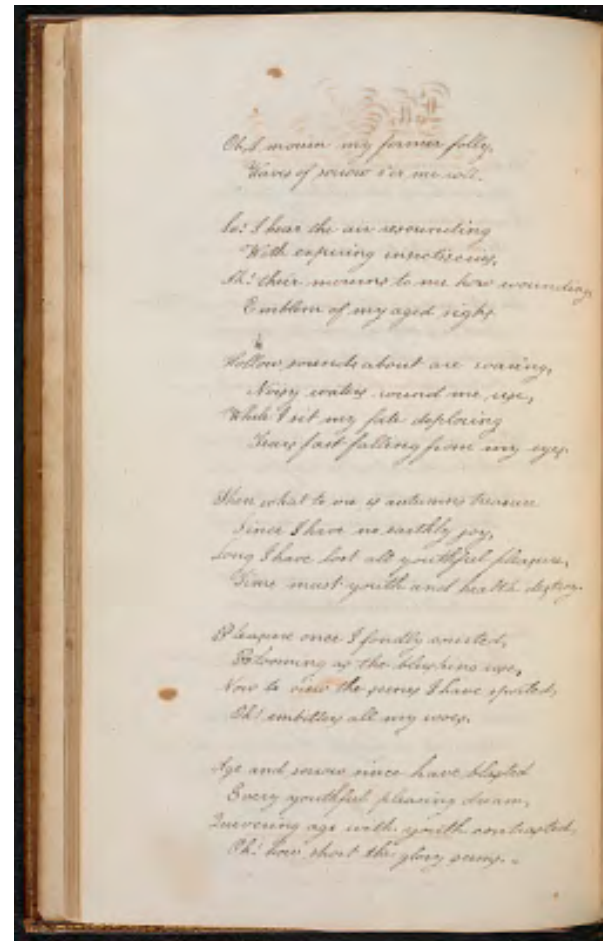 Oh, I mourn my former folly,
Waves of sorrow o'er me roll.
Lo! I hear the air resounding
With expiring insect's cries,
Ah! their mourns to me how wounding,
Emblem of my aged sighs
Hollow sounds about are roaring,
Noisy waters round me rise,
While I sit my fate deploring
Tears fast falling from my eyes.
Then what to me is autumn's treasure
Since I have no earthly joy,
Long I have lost all youthful pleasure,
Time must youth and health destroy.
Pleasure once I fondly courted,
Blooming as the blushing rose,
Now to view the scenes I have sported,
Oh! embitters all my woes.
Age and sorrow since have blasted
Every youthful pleasing dream,
Quivering age with youth contrasted,
Oh! how short the glory seems.